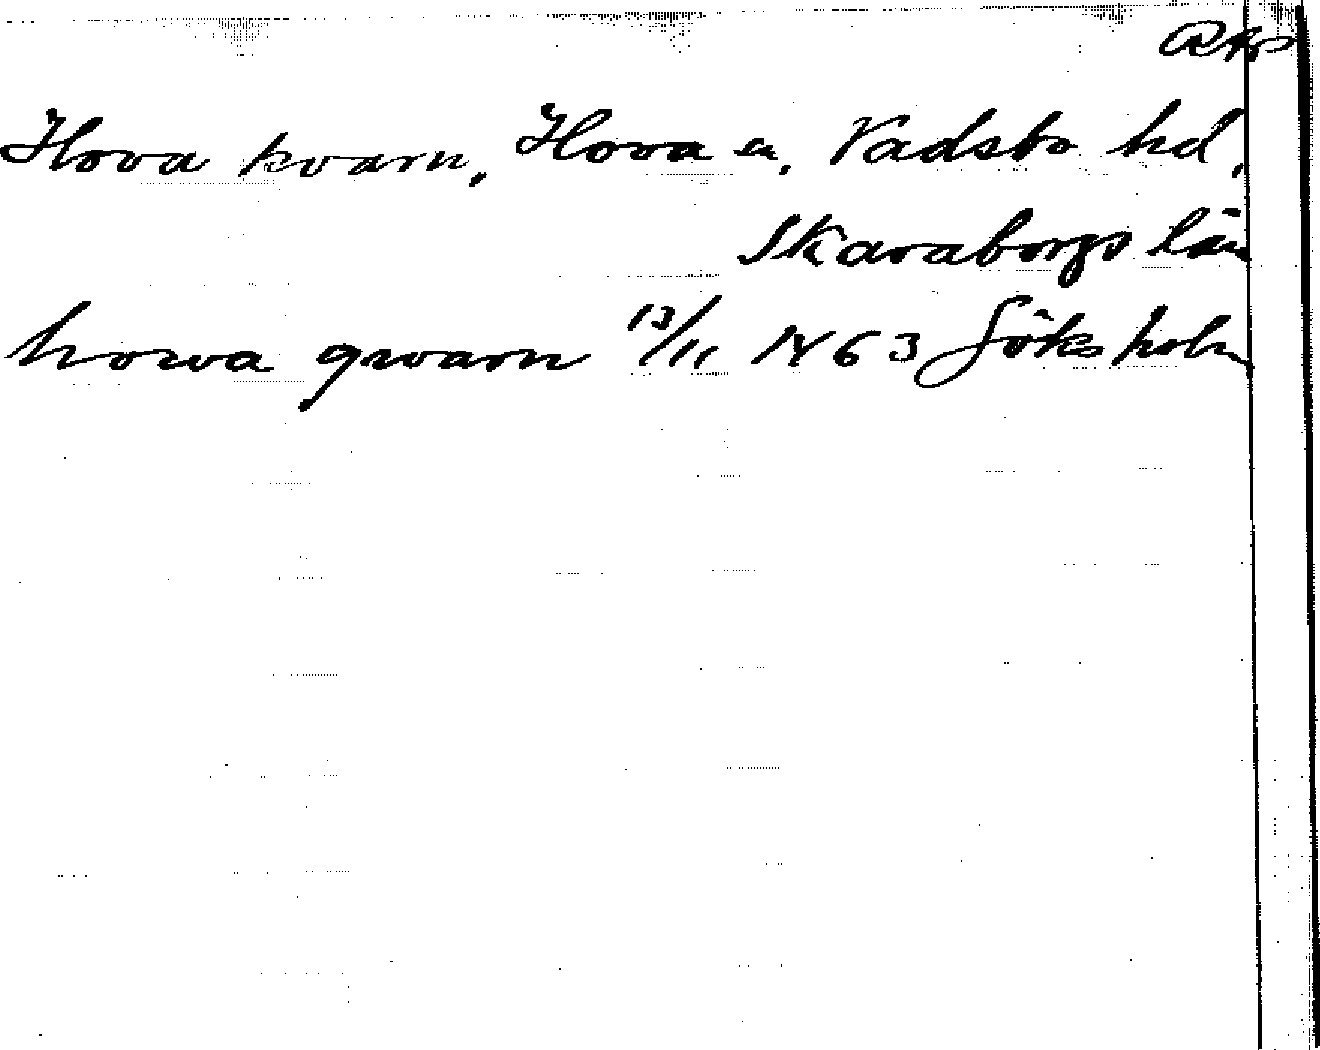 Hova kvarn, Hova sn, Vadsbo hd,
Skaraborgs län
howa qwarn 13/11 1463 Söksholm